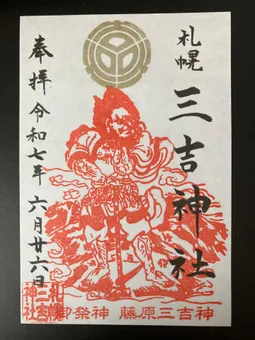 札幌
三吉神社
奉拝 令和七年 六月廿六日
御祭神 藤原三吉神